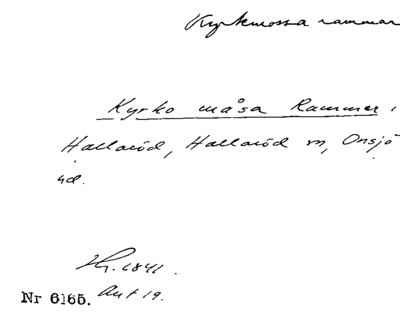 Kyrkmossa rammar
Kyrko måsa Rammer,
Hallaröd, Hallaröd sn, Onsjö
hd.
Hy. 1841.
Akt 19.
Nr 6165.